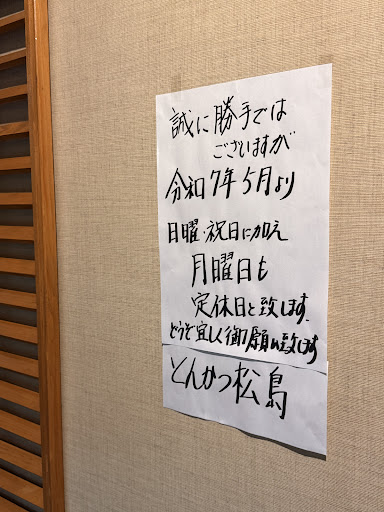 誠に勝手では
ございますが
令和7年5月より
日曜・祝日に加え
月曜日も
定休日と致します.
どうぞ宜しく御願い致します
とんかつ松島